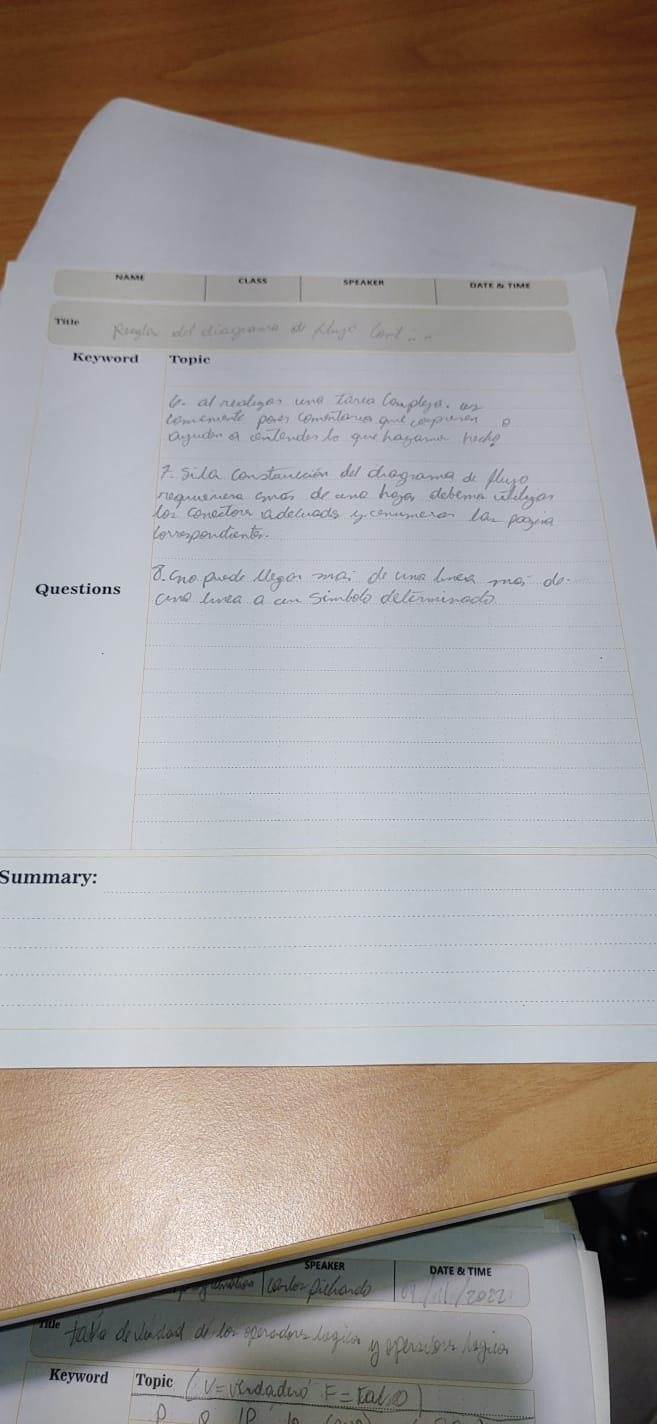 NAME CLASS SPEAKER DATE & TIME
Title Regla del diagrama de flujo Cont...
Keyword Topic
6. al realizar una tarea Compleja. es
poner comentarios que expresen o
ayuden a entender lo que hayamos hecho
7. Si la construcción del diagrama de flujo
requiriera mas de una hoja debemo utilizar
los conectores adecuado y enumerar las pagina
correspondientes.
Questions
8. no puede llegar mas de una linea mas de
una linea a un simbolo determinado.
Summary:
SPEAKER DATE & TIME
Carlos Pichardo /11/2022
Title tabla de verdad de los operadores logicos y operadores logicos
Keyword Topic (V=verdadero F=Falso)
P